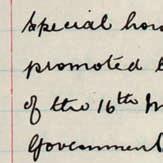 special
promoted
of the 16th
Government